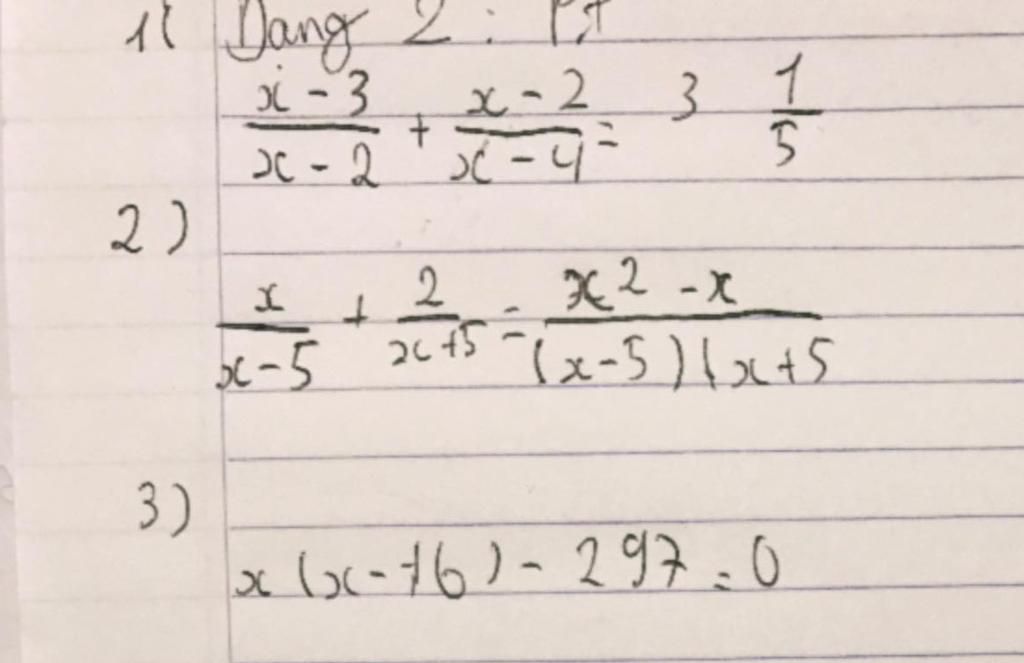 1( Dang 2 : PT
x - 3 / x - 2 + x - 2 / x - 4 = 3 1/5
2)
x / x - 5 + 2 / x + 5 = x² - x / (x - 5)(x + 5
3)
x(x - 16) - 297 = 0